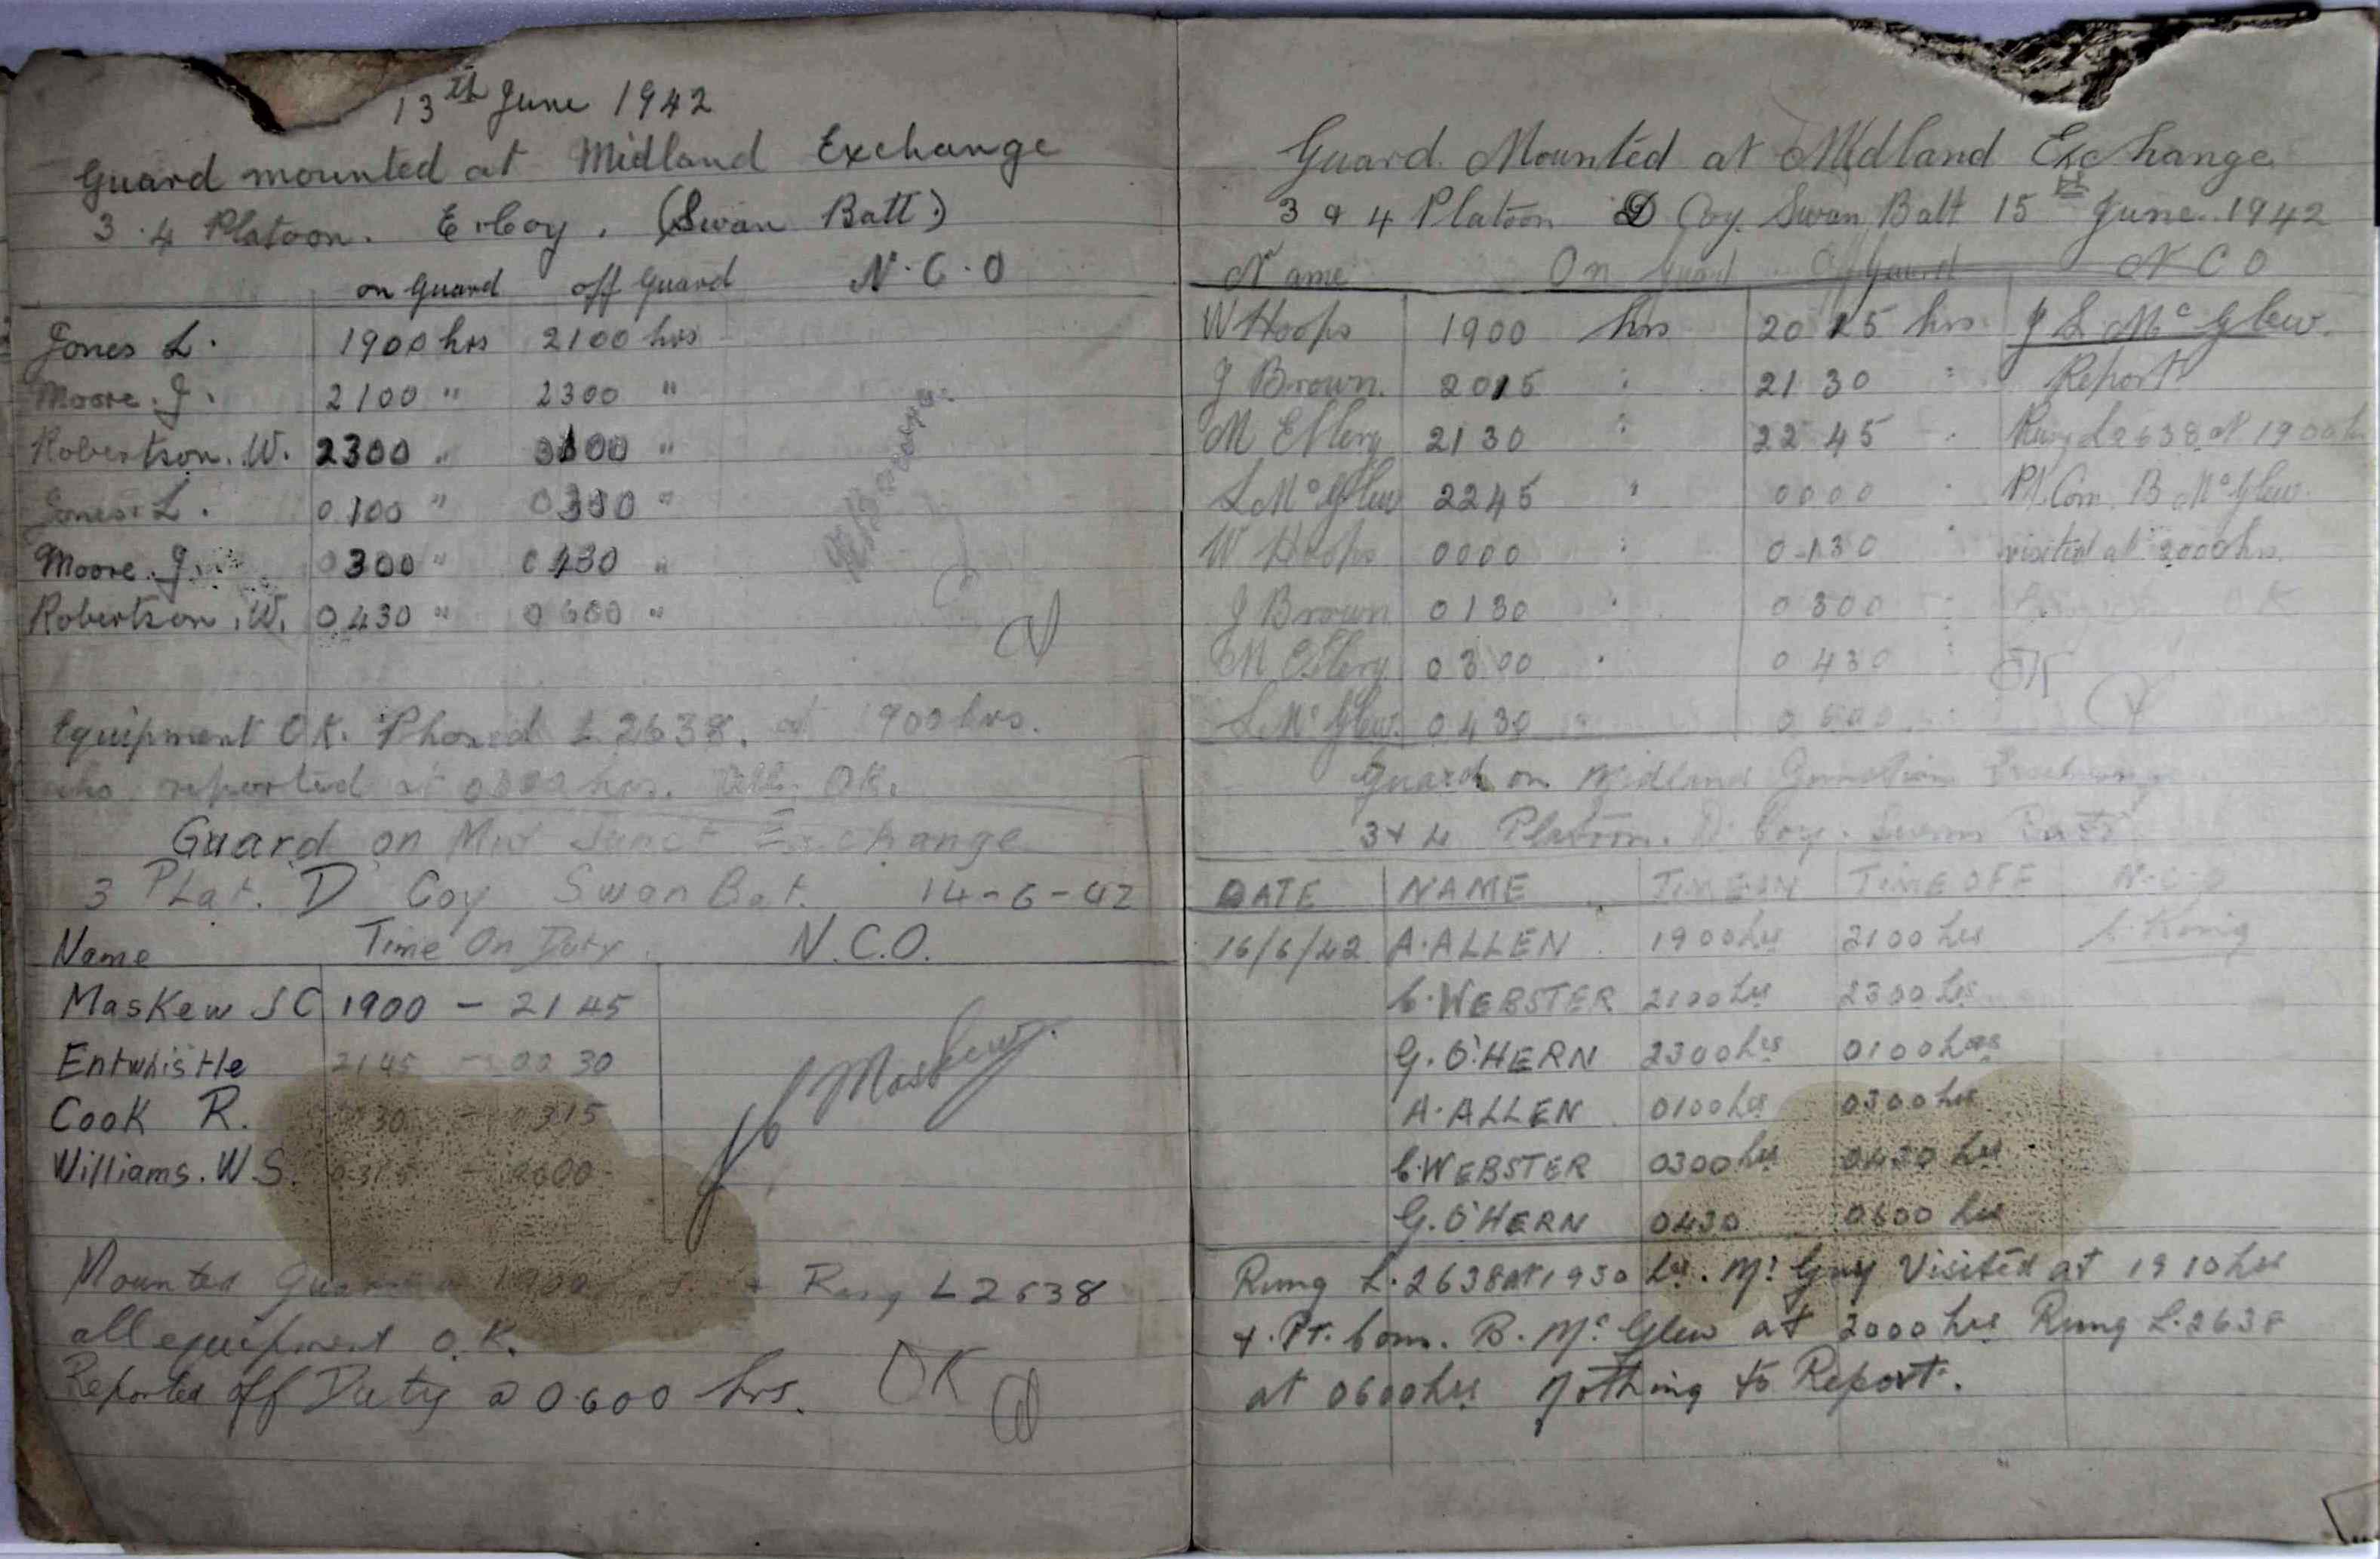 13th June 1942
Guard mounted at Midland Exchange
3.4 Platoon. Coy. (Swan Batt.)
on Guard off Guard N.C.O
Jones L. 1900 hrs 2100 hrs
Moore. J. 2100 " 2300 "
Robertson. W. 2300 " "
Jones. L. 0100 " "
Moore. J. 0300 " 0430 "
Robertson. W. 0430 " 0600 "
Equipment OK. Phoned L 2638. at 1900 hrs.
reported at hrs. OK.
Guard on Mid Junct Exchange
3 PLat. D Coy Swan Bat. 14-6-42
Name Time On Duty N.C.O.
Maskew J C 1900 - 2145 J C Maskew.
Entwhistle 2145 - 0030
Cook R. 0030 - 0315
Williams. W S. 0315 - 0600
Mounted Guard 1900 + Rang L2638
all equipment O.K.
Reported off Duty @ 0600 hrs. OK
Guard Mounted at Midland Exchange
3 & 4 Platoon D Coy. Swan Batt 15th June 1942
Name On Guard Off Guard N C O
W Hoops 1900 hrs 2015 hrs J L McGlew.
J Brown. 2015 " 2130 " Report
M Ellery 2130 " 2245 " Rung L2638 at 1900 h
L McGlew 2245 " 0000 " Pl. Com. B McGlew.
W Hoops 0000 " 0130 " visited at 2000 hrs.
J Brown 0130 " 0300 " OK
M Ellery 0300 " 0430 " OK
L McGlew. 0430 0600
Guard on Midland Junction Exchange
3 & 4 Platoon. D. Coy. Swan Batt
DATE NAME TIME ON TIME OFF N.C.O
16/6/42 A. ALLEN 1900 hrs 2100 hrs
C. WEBSTER 2100 hrs 2300 hrs
G. O'HERN 2300 hrs 0100 hrs
A. ALLEN 0100 hrs 0300 hrs
C. WEBSTER 0300 hrs 0430 hrs
G. O'HERN 0430 0600 hrs
Rung L. 2638 at 1930 hrs. Mr Guy Visited at 1910 hrs
+ Pt. Com. B. McGlew at 2000 hrs Rung L. 2638
at 0600 hrs Nothing to Report.